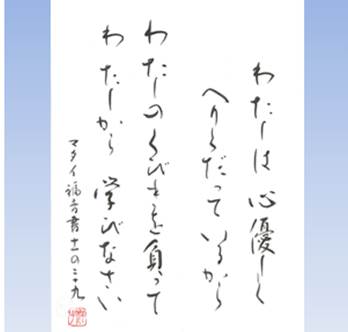 わたしは心優しく
へりくだっているから
わたしのくびきを負って
わたしから 学びなさい
マタイ福音書十一の二十九